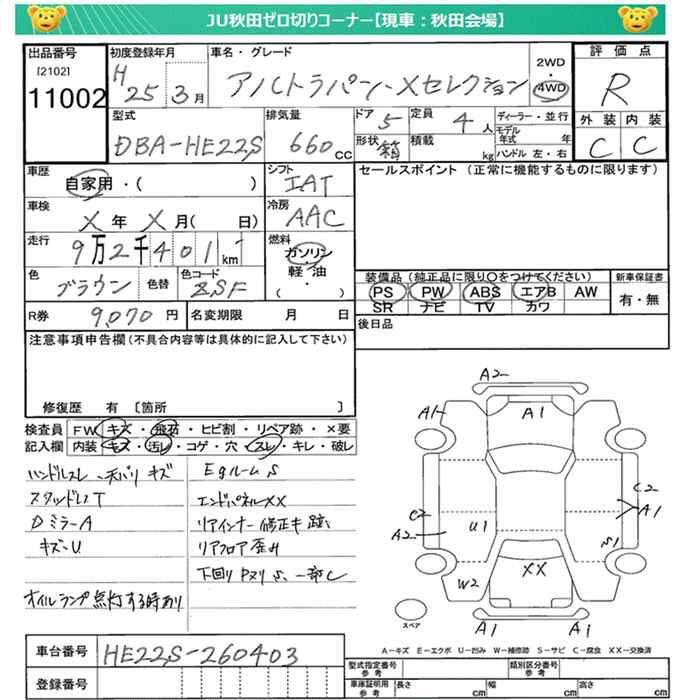 JU秋田ゼロ切りコーナー【現車：秋田会場】
出品番号 初度登録年月 車名・グレード 2WD 評価点
[2102] H 25 3月 アルトラパン-Xセレクション 4WD R
11002 外装 内装
型式 排気量 ドア 5 定員 4人 ディーラー・並行 C C
DBA-HE22S 660cc 形状 箱 積載 kg モデル年式 年
ハンドル 左・右
車歴 シフト セールスポイント (正常に機能するものに限ります)
自家用・( ) IAT
車検 冷房
X年X月( 日) AAC
走行 燃料
9万2千401km ガソリン
軽・油 装備品(純正品に限り○をつけてください) 新車保証書
色 ブラウン 色替 色コード ZSF ( ) PS PW ABS エアB AW 有・無
SR ナビ TV カワ
R券 9,070円 名変期限 月 日 後日品
注意事項申告欄(不具合内容等は具体的に記入して下さい)
修復歴 有 [箇所 ]
検査員 FW キズ・飛石・ヒビ割・リペア跡・×要
記入欄 内装 キズ・汚レ・コゲ・穴・スレ・キレ・破レ
ハンドルスレ、天バリキズ Egルーム S
スタッドレスT エンドパネルXX
Dミラー A リアインナー修正キ跡
キズ・U リアフロア歪み
下回りPヌリS、一部C
オイルランプ点灯する時あり
A2
A1 A1
C2 C2
A1
A2 U1 S1
W2 XX
スペア A1 A1
A－キズ E－エクボ U－凹み W－補修跡 S－サビ C－腐食 XX－交換済
車台番号 HE22S-260403
型式指定番号 参考 類別区分番号 参考
登録番号
車庫証明用 参考 長さ cm 幅 cm 高さ cm